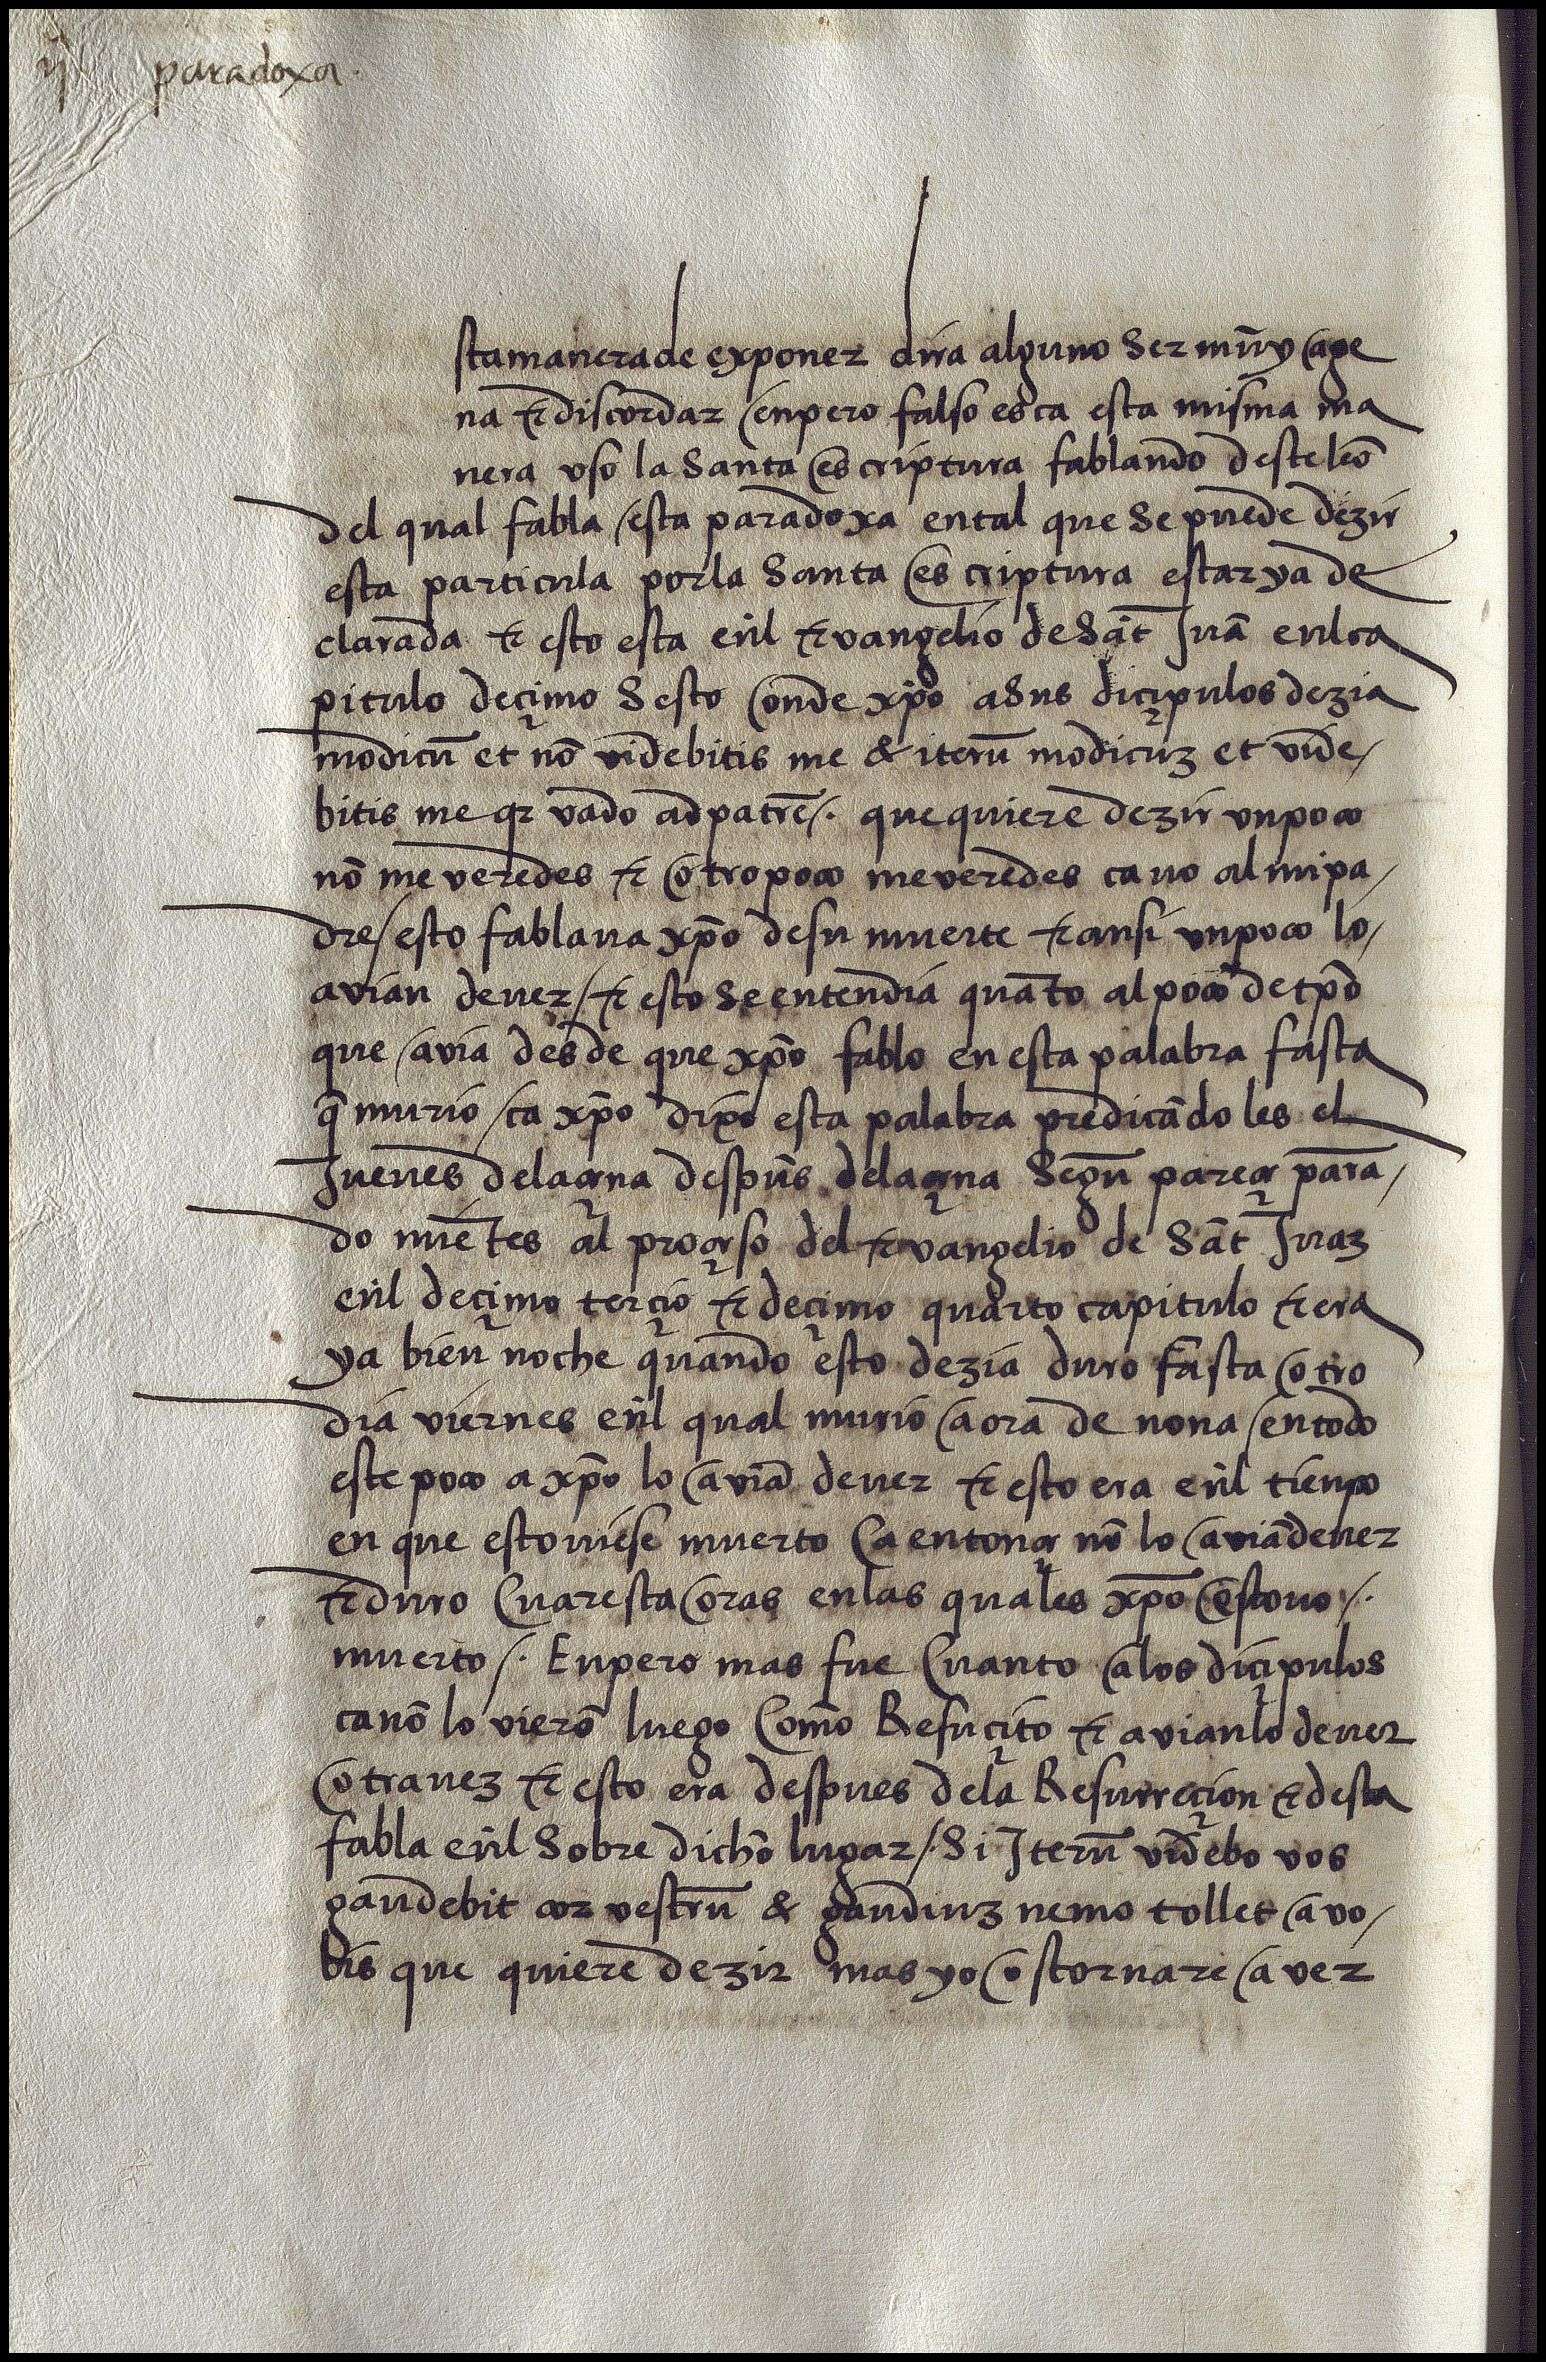 ij paradoxa.
sta manera de exponer dira alguno Ser muy age
na & discordar enpero falso es ca esta misma ma
nera uso la Santa escriptura fablando deste leõ
del qual fabla esta paradoxa en tal que Se puede dezir
esta particula por la Santa escriptura estar ya de
clarada & esto esta enl evangelio de Sãt Juã enl ca
pitulo deçimo Sesto onde xp̃o a Sus diçipulos dezia
modicũ et nõ videbitis me & iterũ modicuz et vide/
bitis me qz vado ad patrẽ/. que quiere dezir un poco
nõ me veredes & otro poco me veredes ca vo al mi pa/
dre/ esto fablaua xp̃o de su muerte & ansi un poco lo/
avian de uer/ & esto Se entendia quãto al poco de tp̃o
que avia desde que xp̃o fablo en esta palabra fasta
q̃ murio/ ca xp̃o dixo esta palabra predicãdo les el
Jueues dela çena despũs dela çena Segũ pareçe para/
do miẽtes al proçeso del evangelio de Sãt Juaz
enl deçimo terçio & deçimo quarto capitulo & era
ya bien noche quando esto dezia duro fasta otro
dia viernes enl qual murio a ora de nona/ en todo
este poco a xp̃o lo aviã de uer & esto era enl tienpo
en que estouiese muerto Ca entonçe nõ lo aviã de uer
& duro Cuaresta oras en las quales xp̃o estouo/.
muerto/. Enpero mas fue Cuanto a los diçipulos
ca nõ lo vierõ luego Como Resuçito & avian lo de uer
otra uez & esto era despues dela Resurreçion & desta
fabla enl Sobre dicho lugar/. Si Iterũ videbo vos
gaudebit cor vestrũ & gaudiuz nemo tollet a vo/
bis que quiere dezir mas yo os tornare a ver